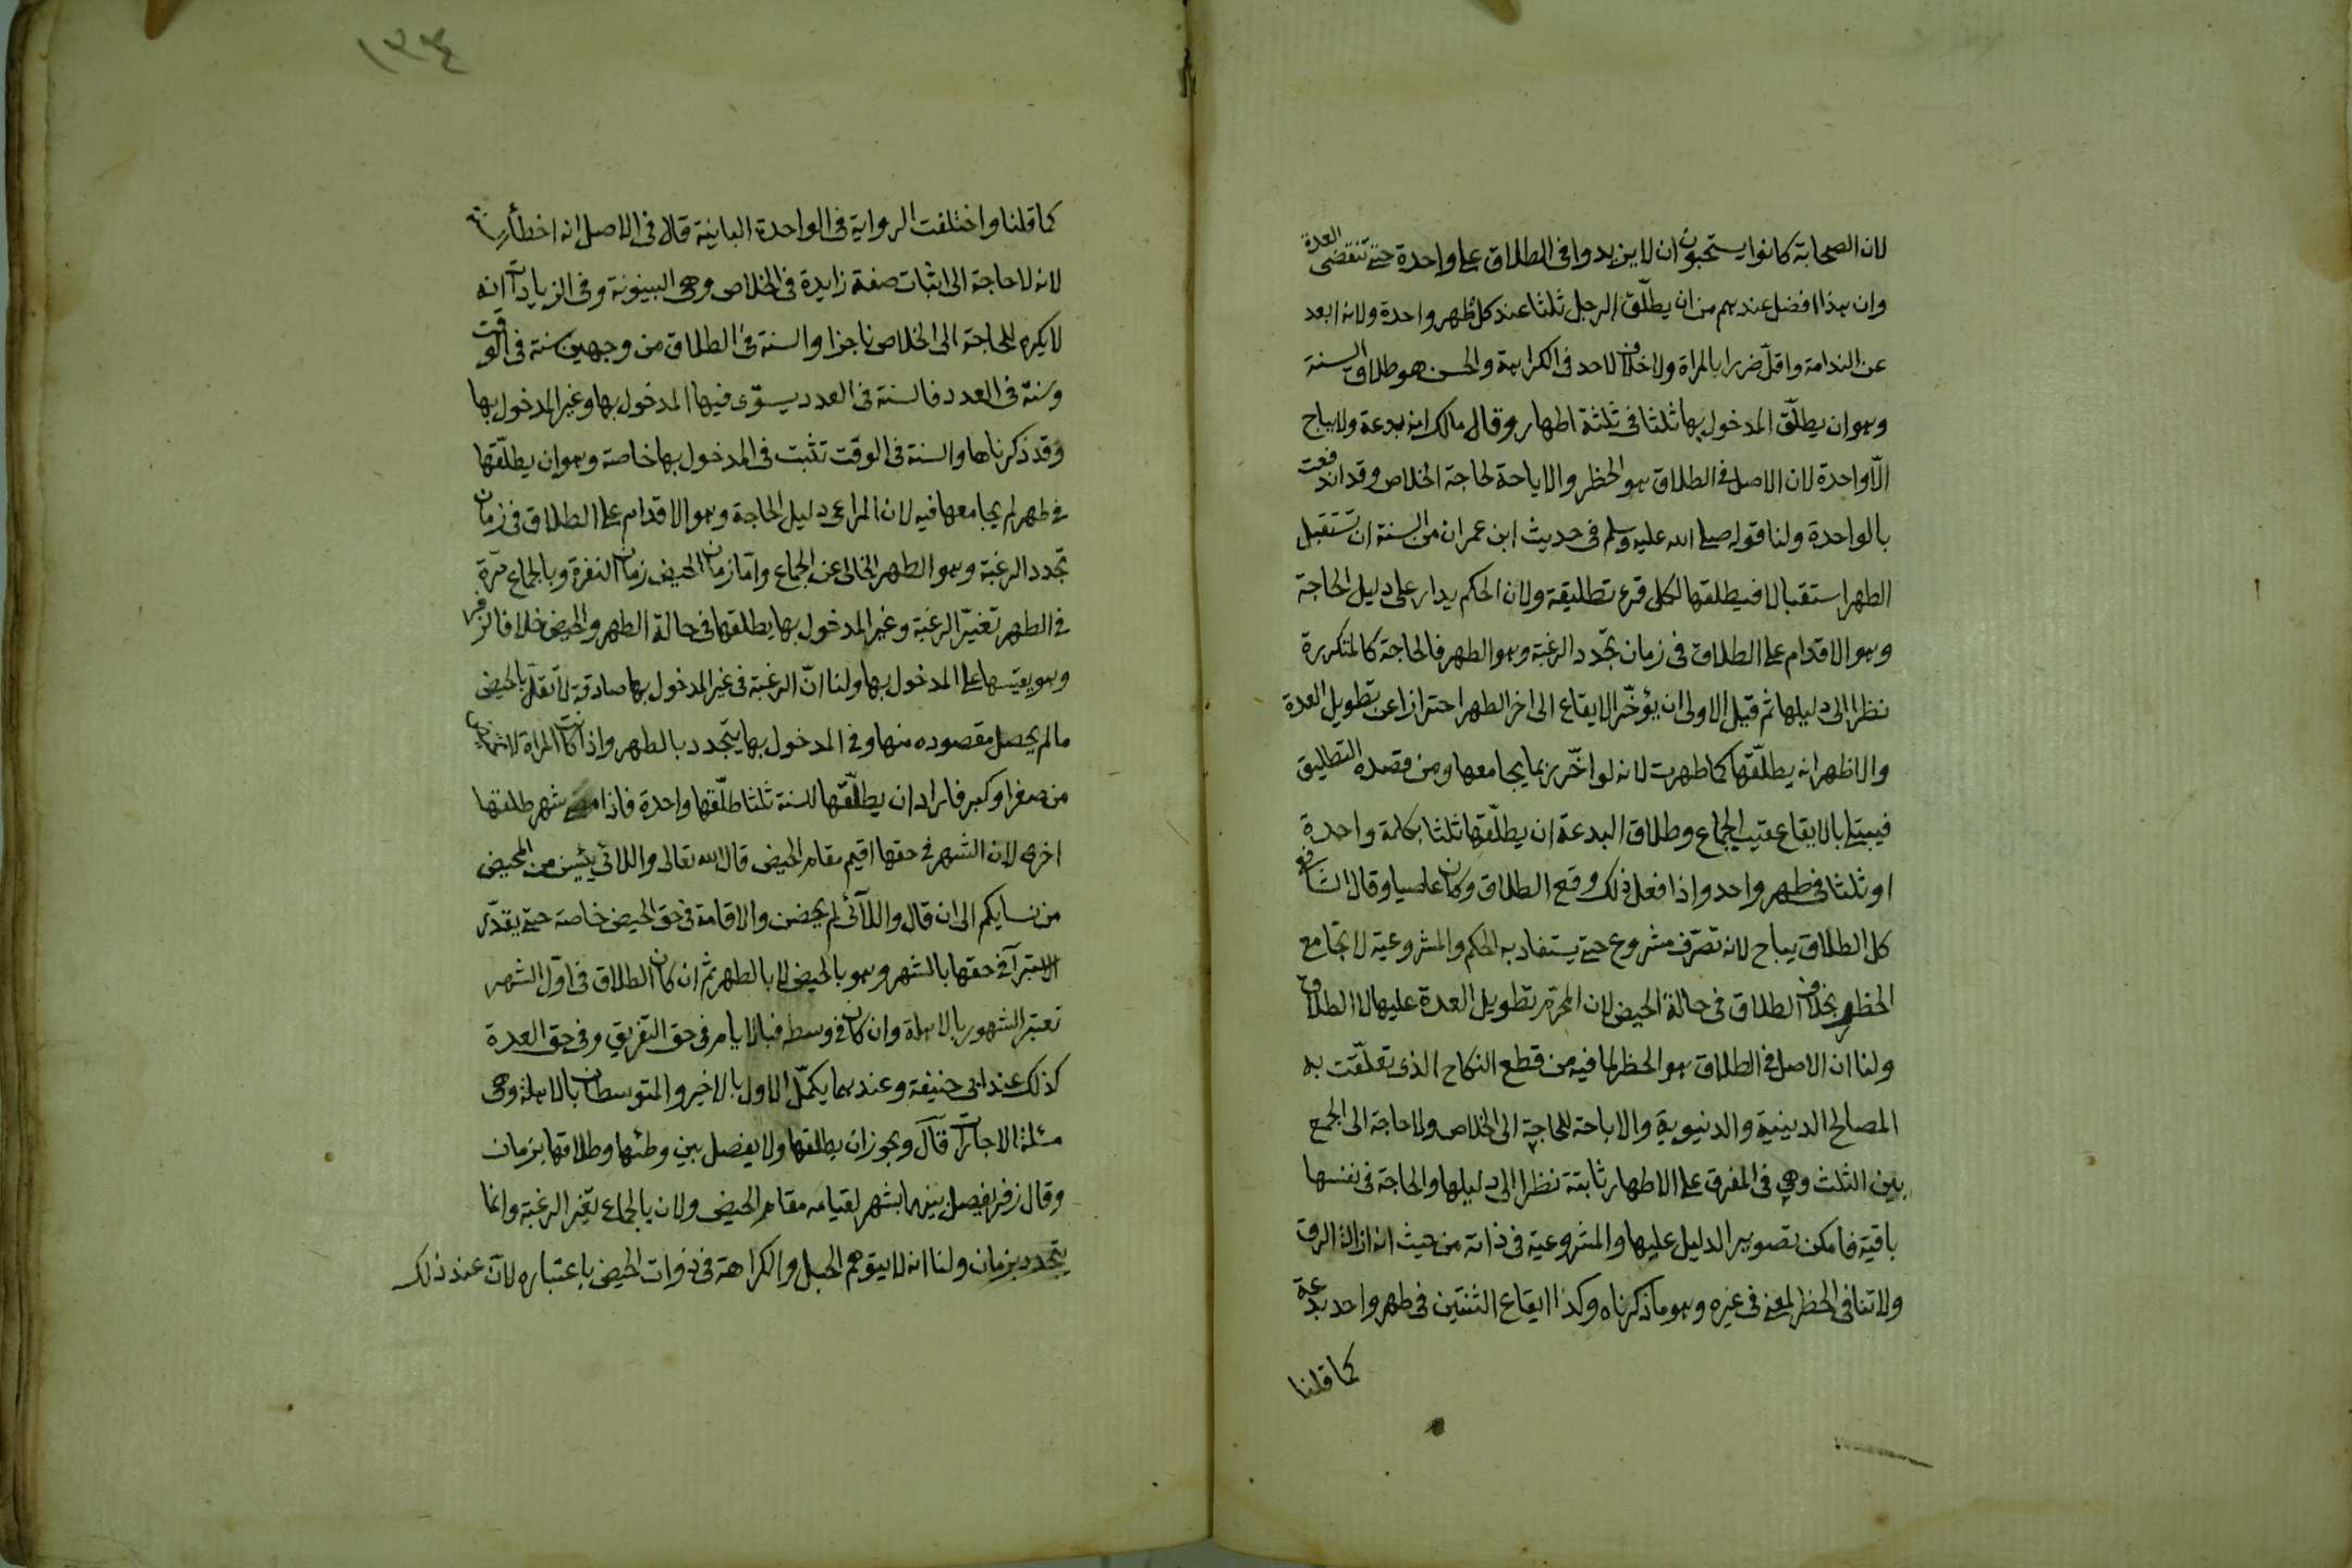 لان الصحابة كانوا يستحبون ان لا يزيدوا فى الطلاق على واحدة حتى تنقضى العدة
وان هذا افضل عندهم من ان يطلّق الرجل ثلثا عند كل طهر واحدة ولانه ابعد
عن الندامة واقلّ ضررا بالمراة ولا خلاف لاحد فى الكراهة والحسن هو طلاق السنة
وهو ان يطلّق المدخول بها ثلثا فى ثلثة اطهار وقال مالك انه بدعة ولا يباح
الّا واحدة لان الاصل فى الطلاق هو الحظر والاباحة لحاجة الخلاص وقد اندفعت
بالواحدة ولنا قوله صلى الله عليه وسلم فى حديث ابن عمر ان من السنة ان تستقبل
الطهر استقبالا فيطلقها لكل قرء تطليقة ولان الحكم يدار على دليل الحاجة
وهو الاقدام على الطلاق فى زمان تجّدد الرغبة وهو الطهر فالحاجة كالمتكررة
نظرا الى دليلها ثم قيل الاولى ان يؤخّر الايقاع الى اخر الطهر احترازا عن تطويل العدة
والاظهر انه يطلّقها كما طهرت لانه لو اخّر ربما يجامعها ومن قصده التطليق
فيبتلى بالايقاع عقيب الجماع وطلاق البدعة ان يطلّقها ثلثا بكلمة واحدة
او ثلثا فى طهر واحد واذا فعل ذلك وقع الطلاق وكان عاصيا وقال الشافعى
كل الطلاق يباح لانه تصرّف مشروع حتى يستفاد به الحكم والمشروعية لا تجامع
الحظر بخلاف الطلاق فى حالة الحيض لان المحرّم تطويل العدة عليها لا الطلاق
ولنا ان الاصل فى الطلاق هو الحظر لما فيه من قطع النكاح الذى تعلّقت به
المصالح الدينية والدنيوية والاباحة للحاجة الى الخلاص ولا حاجة الى الجمع
بين الثلث وهى فى المفرق على الاطهار ثابتة نظرا الى دليلها والحاجة فى نفسها
باقية فامكن تصوير الدليل عليها والمشروعية فى ذاته من حيث انه ازالة الرق
ولا تنافى الحظر لمعنى فى غيره وهو ما ذكرناه وكذا ايقاع الثنتين فى طهر واحد بدعة
كما قلنا
١٣٤
كما قلنا واختلفت الرواية فى الواحدة البائنة قال فى الاصل انه اخطأ السنة
لانه لا حاجة الى اثبات صفة زايدة فى الخلاص وهى البينونة وفى الزيادات انه
لا يكره للحاجة الى الخلاص ناجزا والسنة فى الطلاق من وجهين سنة فى الوقت
وسنة فى العدد فالسنة فى العدد يستوى فيها المدخول بها وغير المدخول بها
وقد ذكرناها والسنة فى الوقت تثبت فى المدخول بها خاصة وهو ان يطلّقها
فى طهر لم يجامعها فيه لان المراعى دليل الحاجة وهو الاقدام على الطلاق فى زمان
تجدد الرغبة وهو الطهر الخالى عن الجماع وامّا زمان الحيض زمان النفرة وبالجماع مّرة
فى الطهر تغيّر الرغبة وغير المدخول بها يطلقها فى حالة الطهر والحيض خلافا لزفر
وهو يقيسها على المدخول بها ولنا انّ الرغبة فى غير المدخول بها صادقة لا تقلّ بالحيض
ما لم يحصل مقصوده منها وفى المدخول بها يتجدد بالطهر واذا كانت المراة لا تحيض
من صغر او كبر فاراد ان يطلّقها للسنة ثلثا طلّقها واحدة فاذا مضى شهر طلقها
اخرى لان الشهر فى حقها اقيم مقام الحيض قال الله تعالى واللائى يئسن من المحيض
من نسايكم الى ان قال واللآئى لم يحضن والاقامة فى حق الحيض خاصة حتى يقدّر
الاستبرآ فى حقها بالشهر وهو بالحيض لا بالطهر ثم ان كان الطلاق فى اوّل الشهر
تعتبر الشهور بالاهلة وان كان فى وسطه فبالايام فى حق التفريق وفى حق العدة
كذلك عند ابى حنيفة وعندهما يكمّل الاول بالاخير والمتوسطان بالاهلة وهى
مسئلة الاجارات قال ويجوز ان يطلقها ولا يفصل بين وطئها وطلاقها بزمان
وقال زفر يفصل بينهما بشهر لقيامه مقام الحيض ولان بالجماع تفتر الرغبة وانما
يتجدد بزمان ولنا انه لا يتوهم الحبل والكراهة فى ذوات الحيض باعتباره لانّ عند ذلك